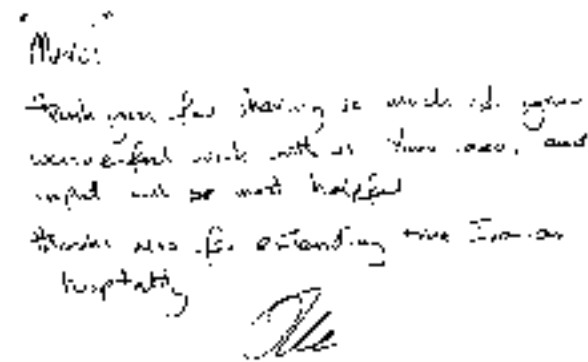 Thank you for sharing so much of your
wonderful work with us, and
input will be most helpful
Thanks also for extending true Iranian
hospitality